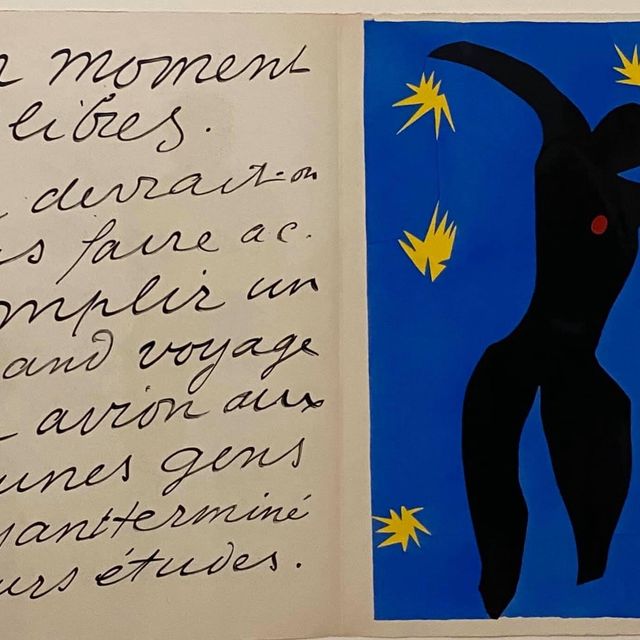 n moment
libres.
devrait-on
s faire ac.
omplir un
and voyage
avion aux
unes gens
yant terminé
urs études.